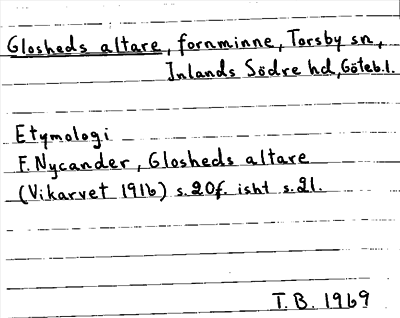 Glosheds altare, fornminne, Torsby sn,
Inlands Södre hd, Göteb.l.
Etymologi
F. Nycander, Glosheds altare
(Vikarvet 1916) s. 20f. isht s. 21.
T.B. 1969